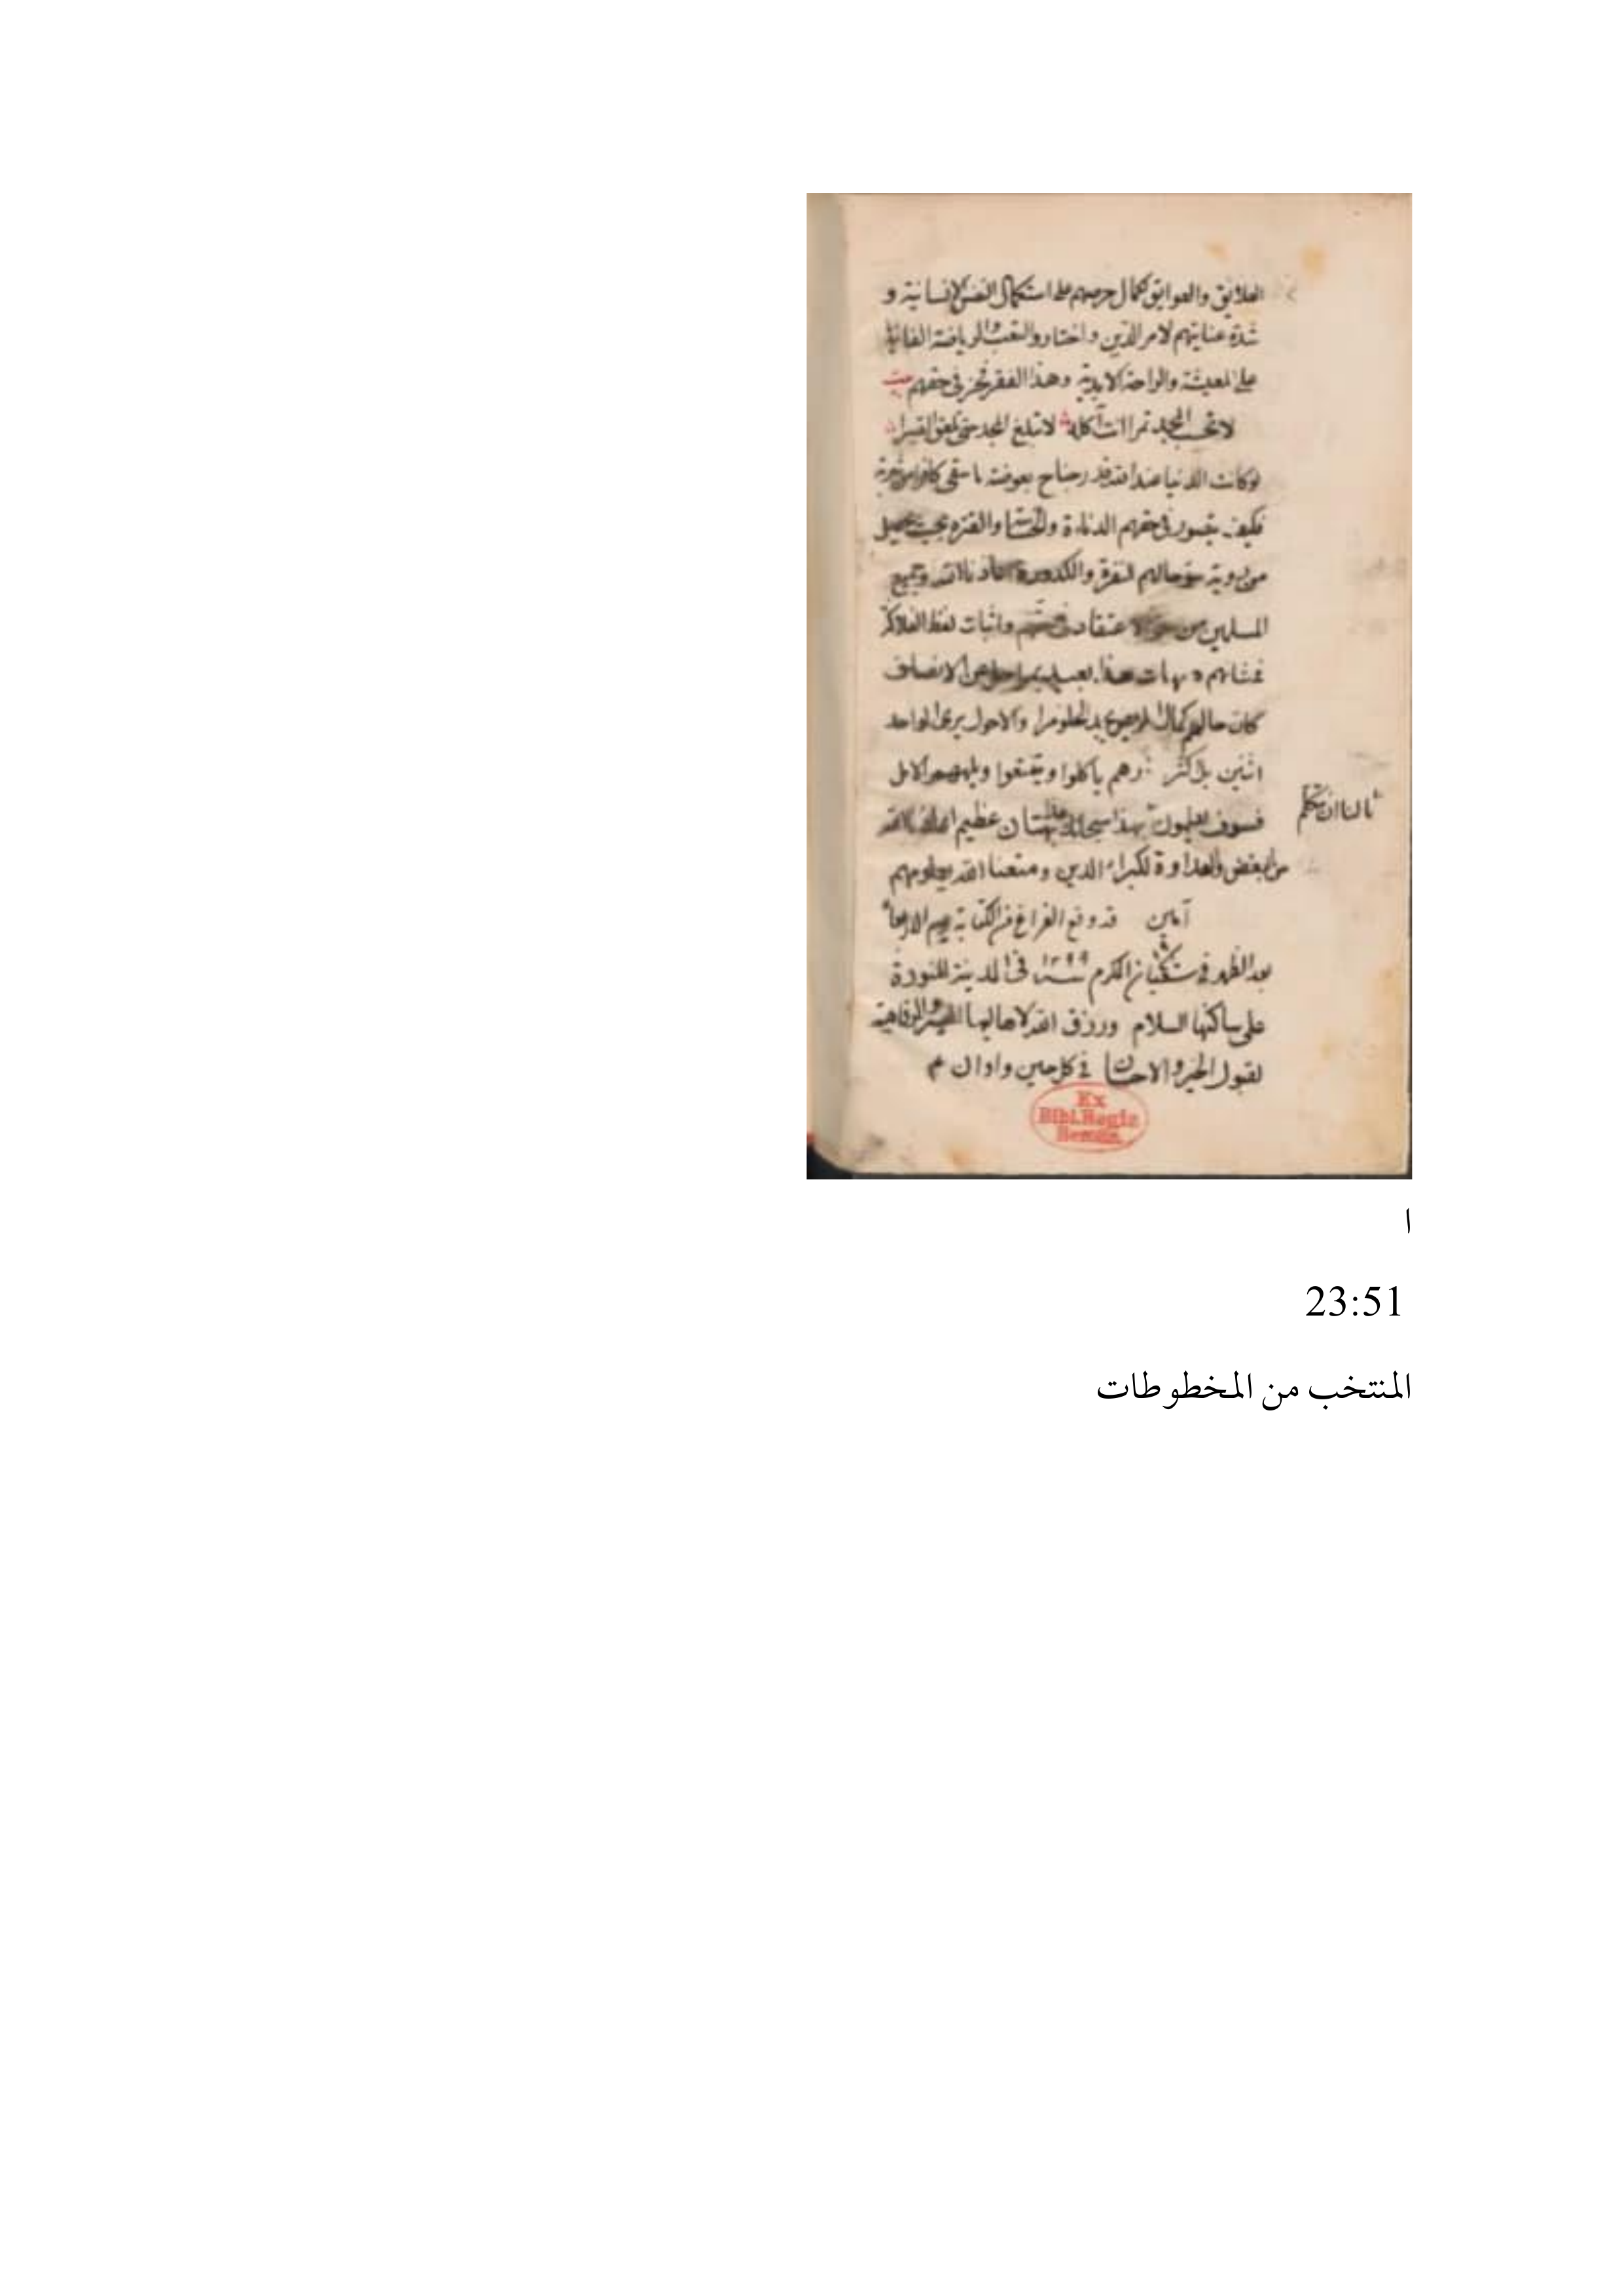 العلائق والعوايق لكمال حرصهم على استكمال النفس الانسانية و
شدة عنايتهم لامر الدين واختاروا التعب والرياضة الفانية
على المعيشة والراحة الابدية وهذا الفقر فخر في حقهم بيت
لا تحسب المجد تمرا انت آكله لا تبلغ المجد حتى تلعق الصبرا
لوكانت الدنيا عند الله قدر جناح بعوضة ما سقى كافرا شربة
فكيف يتصور في حقهم الدناءة والخساسة
من رؤية سوء حالهم النفرة والكدورة الله وجميع
المسلمين من سوء الاعتقاد في حقهم واثبات لفظ
هيهات هذا بعيد بمراحل عن الانصاف
والاحول يرى الواحد
اثنين بل اكثر ذرهم ياكلوا ويتمتعوا ويلههم الامل
فسوف يعلمون
ما لنا ان نتكلم
بهذا سبحانك هذا بهتان عظيم الله
من البغض والعداوة لكبراء الدين ومتعنا الله بعلومهم
آمين قد وقع الفراغ من الكتابة يوم الاربعا
بعد الظهر في المكرم سنة ١٢٩٩ في المدينة المنورة
على ساكنها السلام ورزق الله لاهاليها والرفاهية
لقبول الخير والاحسان في كل حين واوان م
Ex
Bibl. Regia
Berolin.
ا
23:51
المنتخب من المخطوطات